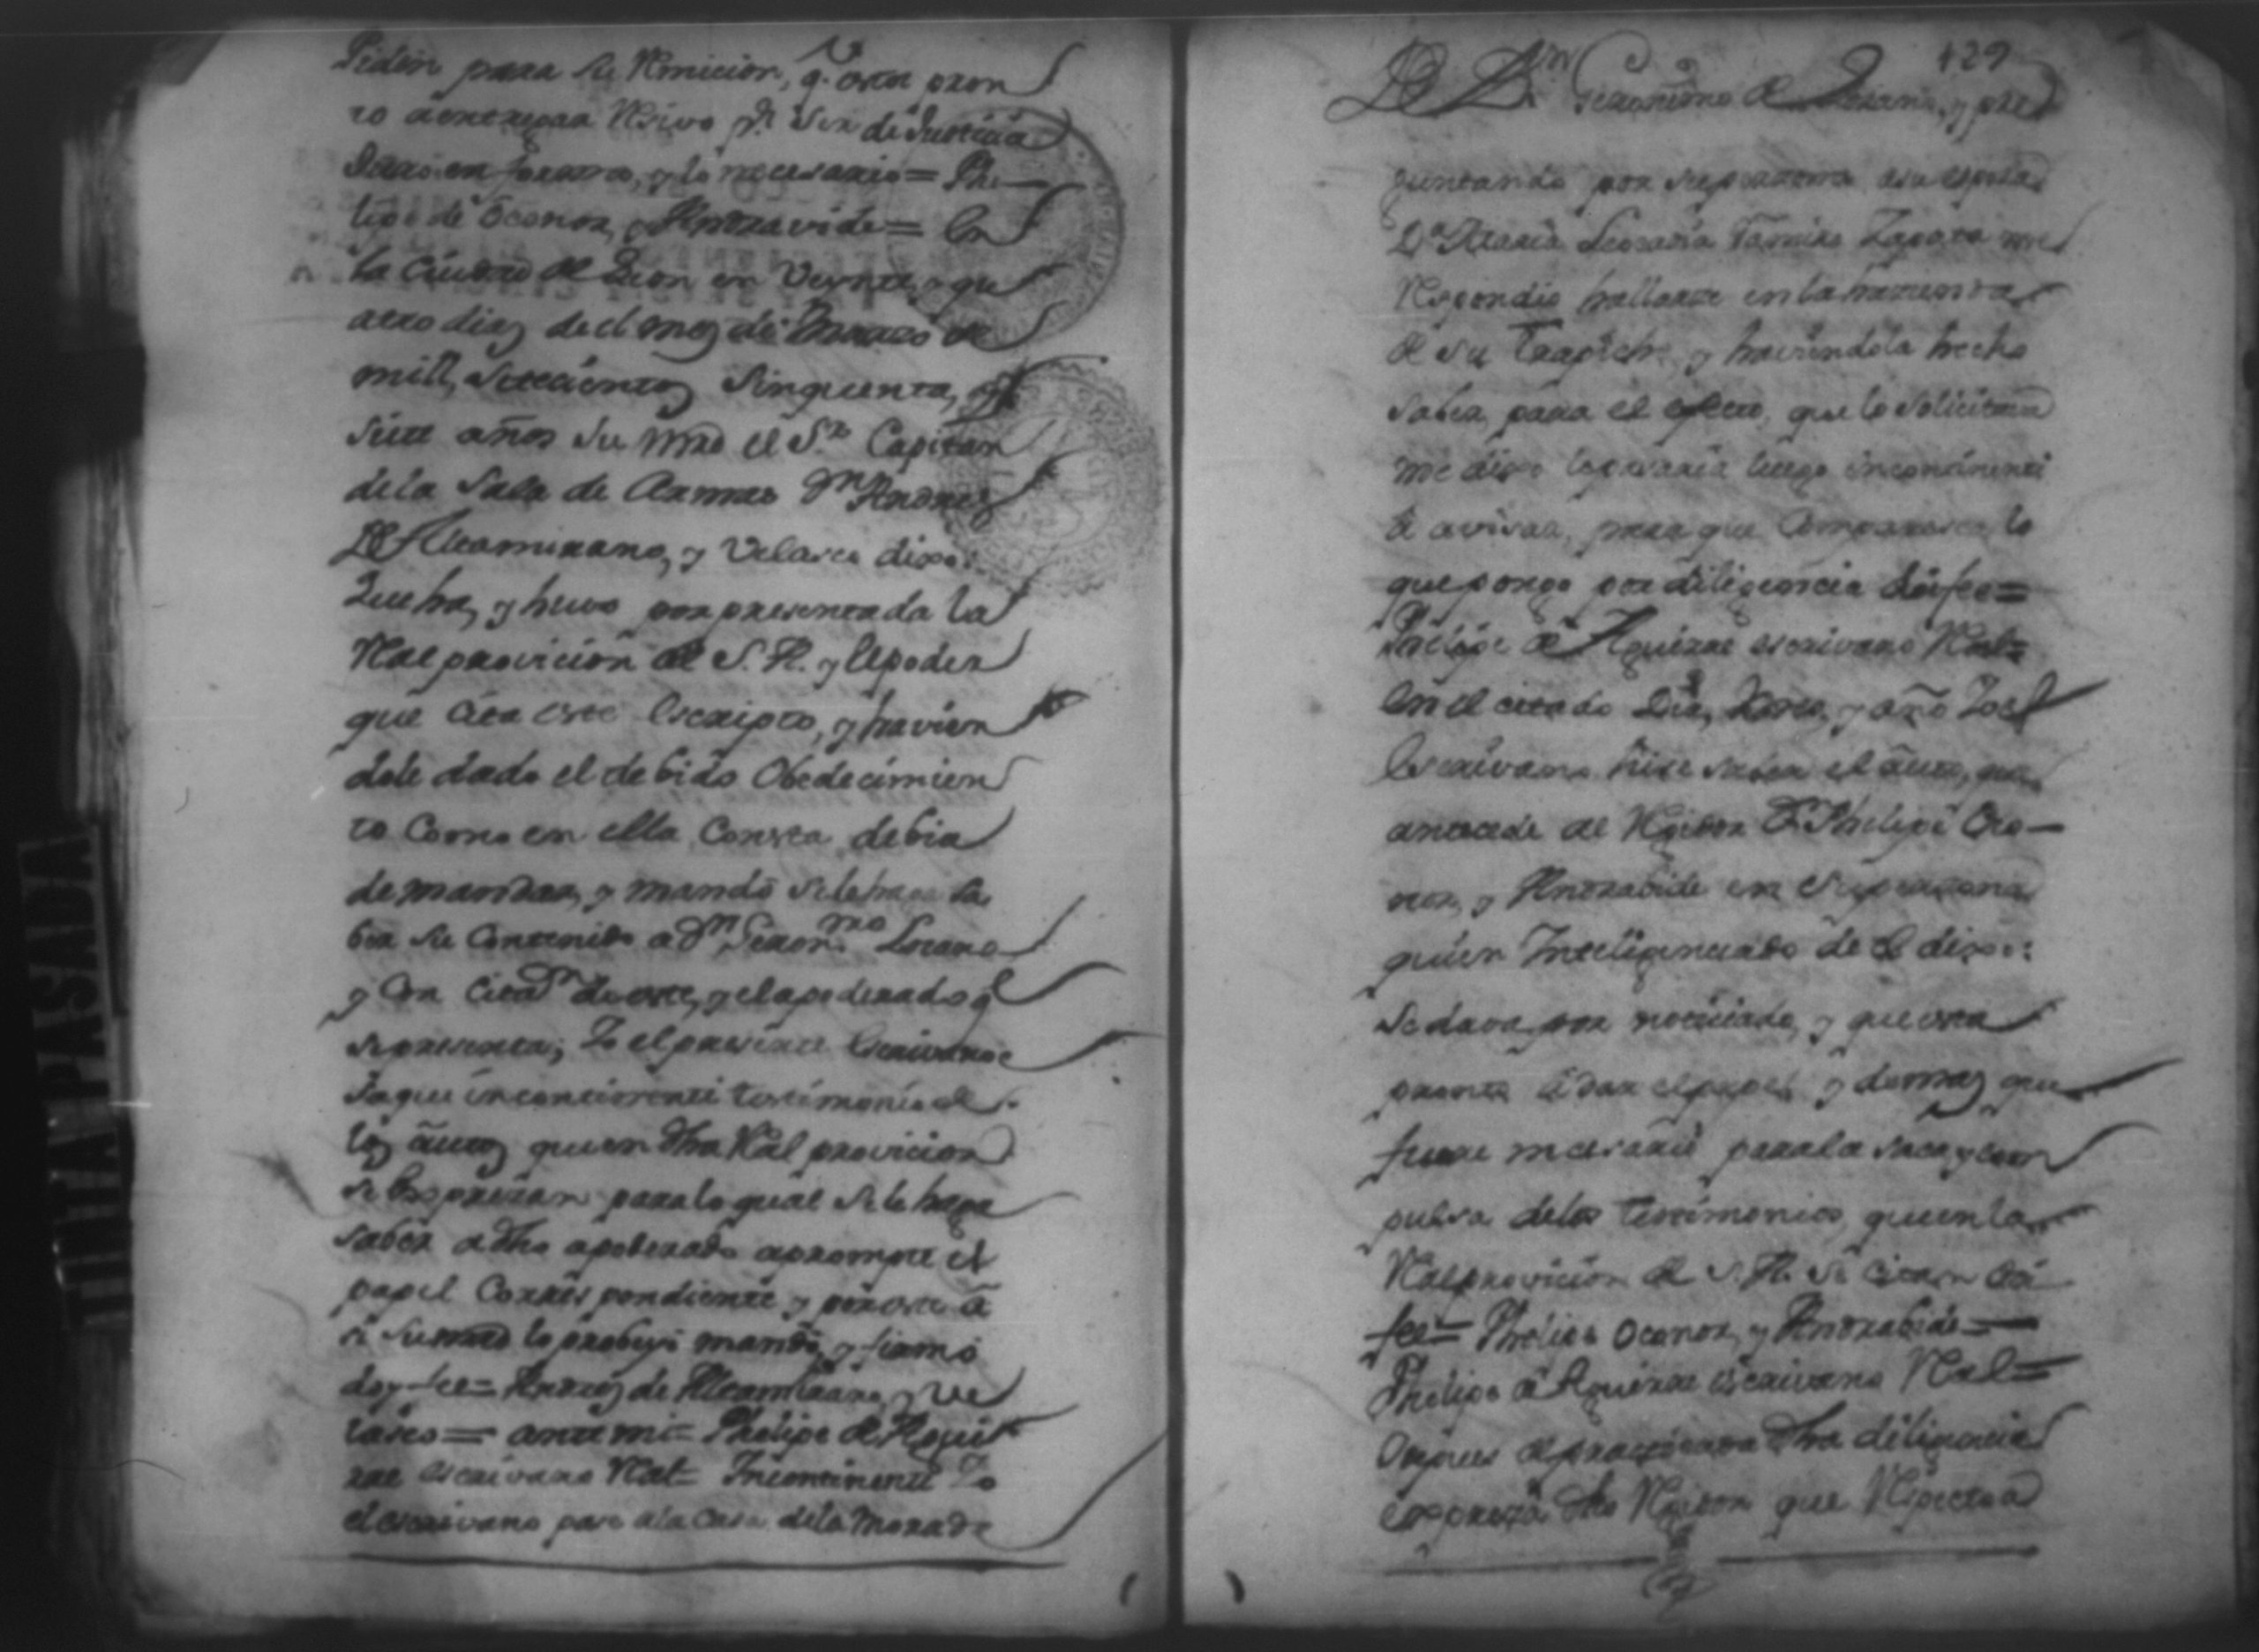 Piden para su Remicion, q. esta pron
to a entregar Resivo pr. ser de Justicia
Juro en forma, y lo necesario = Phe-
lipe de Oconor, y Andravide = En
la Ciudad de Leon en Veynte, y qu
atro dias de el mes de Marzo de
mill, setecientos sinquenta, y
siete años su mrd el Sr. Capitan
de la Sala de Armas Dn Andres
de Altamirano, y Velasco dixo:
Que ha, y huvo por presentada la
Real provicion de S. A. y el poder
que cita este Escripto, y havien
dole dado el debido Obedecimien
to Como en ella Consta, debia
de mandar, y mandó se le haga sa
ber su Contenido a Dn Geronmo Lorano
y Con Citasn de este, y el apoderado q
se presenta, Yo el presente Escrivano
saque incontinenti testimonio de
los autos que en dha Real provicion
se Esprezan para lo qual se le haga
saber a dho apoderado apromte el
papel Correspondiente y por este a
si su mrd lo probeyó mandó, y firmó
doy fee = Andres de Altamirano, y Ve
lasco = ante mi = Phelipe de Aguir
rre escrivano Real = Incontinenti Yo
el escrivano pase a la Casa de la Morada
129
De Dn Geronimo de y pre
guntando por su persona a su esposa
Da Maria Ramires Zapata me
Respondio hallarse en la hacienda
de su Trapiche y haviendola hecho
saber, para el efecto, que lo solicitava
me dixo lo pasaria luego incontinenti
a avisar, para que Comparesca lo
que pongo por diligencia doi fee =
Phelipe de Aguirre escrivano Real =
En el citado Dia, Mes, y año Yo el
Escrivano hise saber el auto, que
antecede al Regidor Dn Phelipe Oco-
nor, y Andrabide en su persona
quien Inteligenciado de el dixo:
se dava por noticiado, y que esta
pronto a dar el papel y demas que
fuere nesesario para la saca y com
pulsa de los testimonios, que en la
Real provicion de S. A. se Citan doi
fee = Phelipe Oconor, y Andrabide =
Phelipe de Aguirre escrivano Real =
Despues de practicada dha diligencia
Expreza dho Regidor que Respecto a